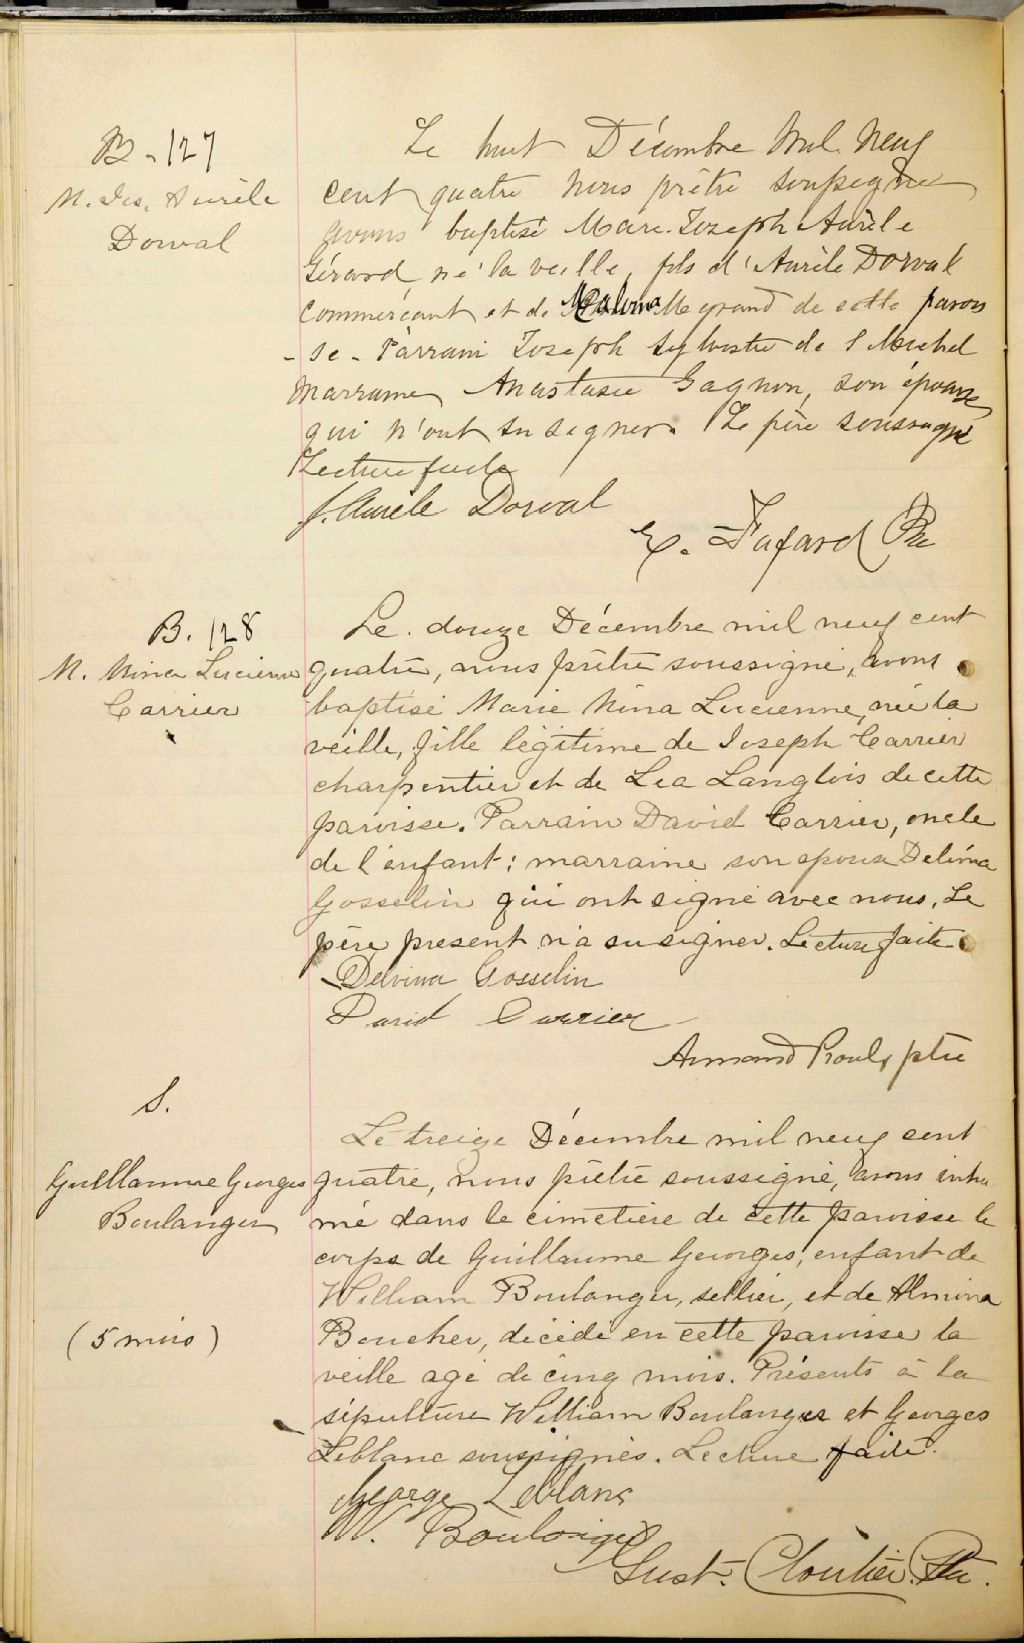 B. 127
M. Jos. Aurèle
Dorval
Le huit Décembre Mil Neuf
cent quatre nous prêtre soussigné
avons baptisé Marc. Joseph Aurèle
Gérard, né la veille, fils d'Aurèle Dorval
Commerçant et de Malvina Megrand de cette parois
-se. Parrain Joseph Sylvestre de S Michel
Marraine Anastasie Gagnon, son épouse,
qui n'ont su signer. Le père soussigné
Lecture faite
J. Aurèle Dorval
E. Fafard Ptre
B. 128
M. Nina Lucienne
Carrier
Le douze Décembre mil neuf cent
quatre, nous prêtre soussigné, avons
baptisé Marie Nina Lucienne, née la
veille, fille légitime de Joseph Carrier
charpentier et de Lea Langlois de cette
paroisse. Parrain David Carrier, oncle
de l'enfant; marraine son epouse Delima
Gosselin qui ont signé avec nous, Le
père present n'a su signer. Lecture faite
Delvina Gosselin
David Carrier
Armand Proulx ptre
S.
Guillaume Georges
Boulanger
(5 mois)
Le treize Décembre mil neuf cent
quatre, nous prêtre soussigné, avons inhu
mé dans le cimetière de cette paroisse le
corps de Guillaume Georges, enfant de
William Boulanger, sellier, et de Almina
Boucher, décédé en cette paroisse la
veille agé de cinq mois. Présents à la
sépulture William Boulanger et Georges
Leblanc soussignés. Lecture faite.
George Leblanc
W. Boulanger
Gust. Cloutier Ptre.